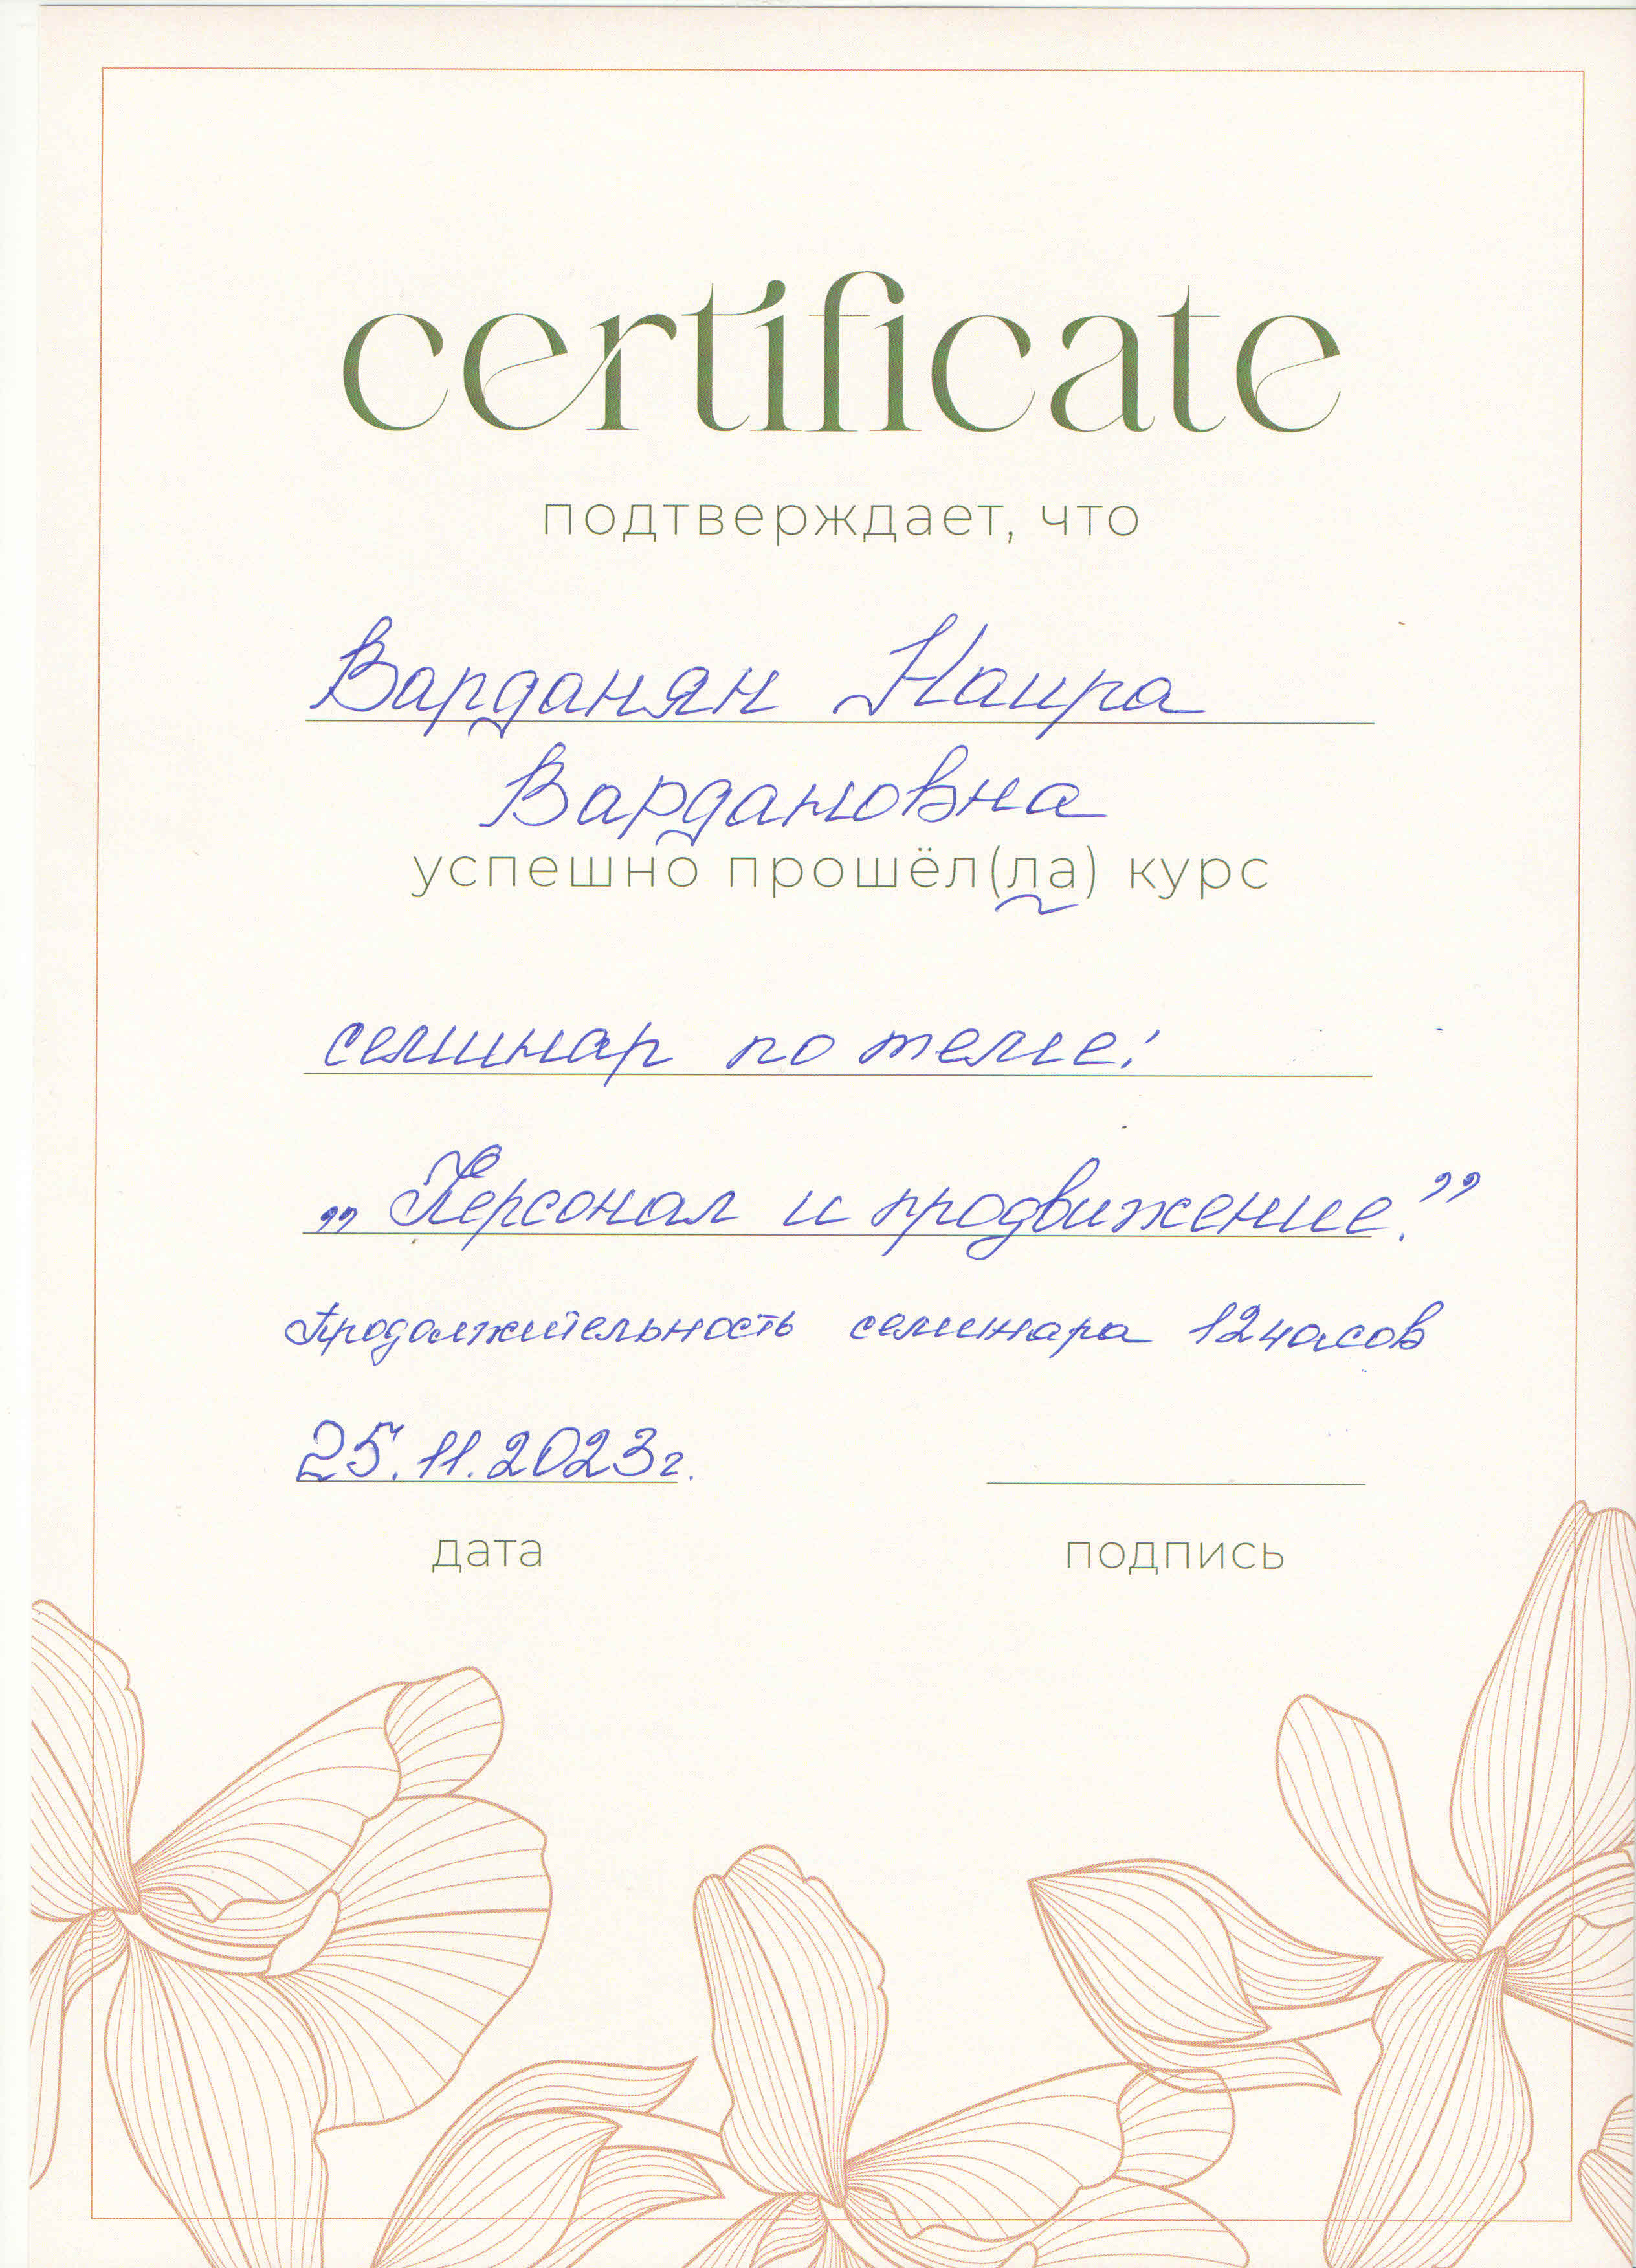 certificate
подтверждает, что
Варданян Наира
Вардановна
успешно прошёл(ла) курс
семинар по теме:
„Персонал и продвижение.”
Продолжительность семинара 12 часов
25.11.2023г.
дата подпись